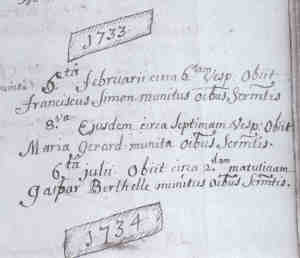 1733
6.ta februarii circa 6.am Vesp. Obiit
Franciscus Simon munitus oibus Scrmtis
8.va Ejusdem circa septimam Vesp. Obiit
Maria Gerard munita oibus Scrmtis.
6.ta julii. Obiit circa 2.dam matutinam
Gaspar Berthelle munitus oibus Scrmtis.
1734